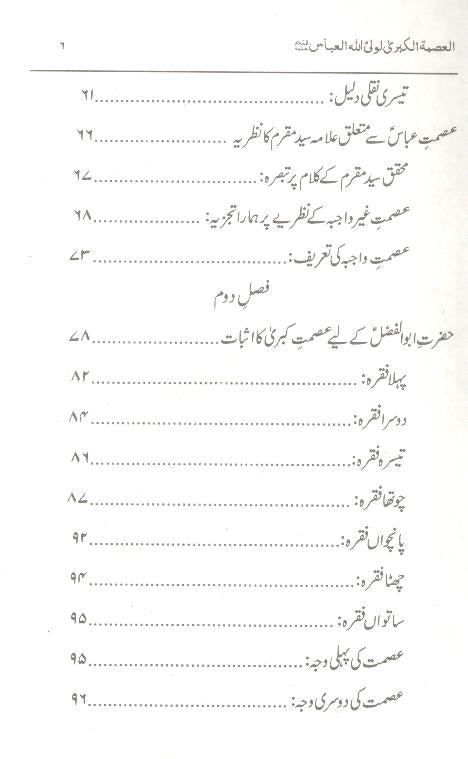 العصمة الكبرىٰ لولیّ اللہ العباس ٦
تیسری نقلی دلیل: ........................ ٦١
عصمتِ عباسؑ سے متعلق علامہ سید مقرم کا نظریہ ........................ ٦٦
محقق سید مقرم کے کلام پر تبصرہ: ........................ ٦٧
عصمتِ غیر واجبہ کے نظریے پر ہمارا تجزیہ: ........................ ٦٨
عصمتِ واجبہ کی تعریف: ........................ ٧٣
فصلِ دوم
حضرتِ ابوالفضلؑ کے لیے عصمتِ کبریٰ کا اثبات ........................ ٧٨
پہلا فقرہ: ........................ ٨٢
دوسرا فقرہ: ........................ ٨۴
تیسرہ فقرہ: ........................ ٨٦
چوتھا فقرہ: ........................ ٨٧
پانچواں فقرہ: ........................ ٩٢
چھٹا فقرہ: ........................ ٩۴
ساتواں فقرہ: ........................ ٩۵
عصمت کی پہلی وجہ: ........................ ٩۵
عصمت کی دوسری وجہ: ........................ ٩٦